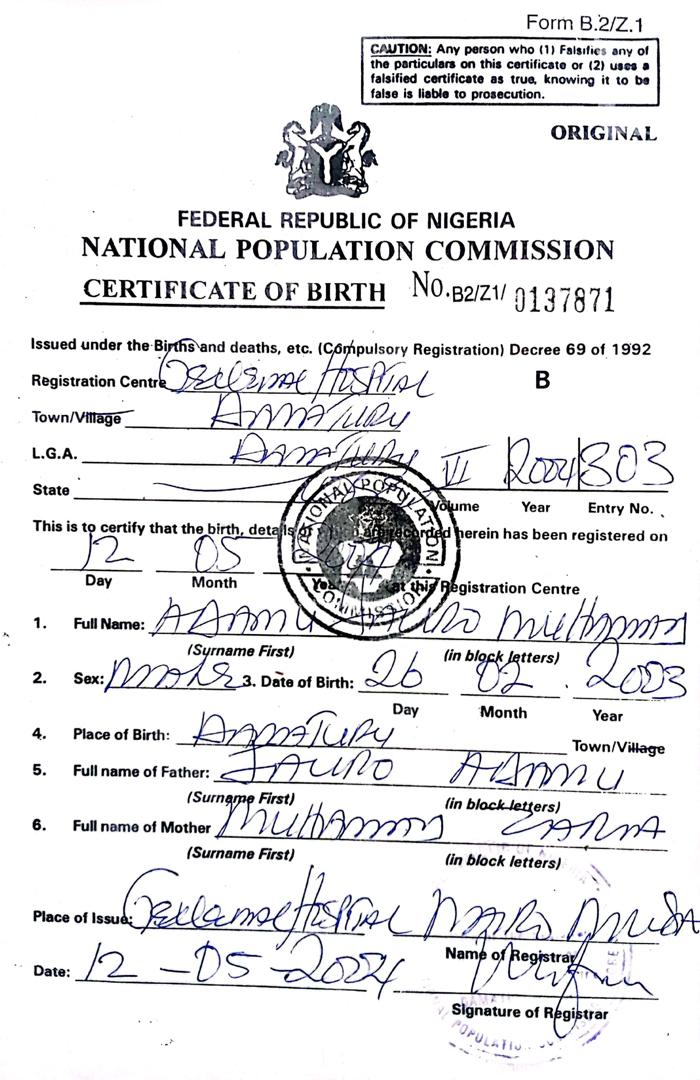 Form B.2/Z.1
CAUTION: Any person who (1) Falsifies any of
the particulars on this certificate or (2) uses a
falsified certificate as true, knowing it to be
false is liable to prosecution.
ORIGINAL
FEDERAL REPUBLIC OF NIGERIA
NATIONAL POPULATION COMMISSION
CERTIFICATE OF BIRTH No. B2/Z1/ 0137871
Issued under the Births and deaths, etc. (Compulsory Registration) Decree 69 of 1992
Registration Centre HOSPITAL B
Town/Village DAMATURU
L.G.A. DAMATURU VI 2004 303
State Volume Year Entry No.
NATIONAL POPULATION COMMISSION
This is to certify that the birth, details of are recorded herein has been registered on
12 05
Day Month Year at this Registration Centre
1. Full Name: ADAMU JAURO MUHAMMAD
(Surname First) (in block letters)
2. Sex: MALE 3. Date of Birth: 26 02 2003
Day Month Year
4. Place of Birth: DAMATURU Town/Village
5. Full name of Father: JAURO ADAMU
(Surname First) (in block letters)
6. Full name of Mother MUHAMMAD ZARA
(Surname First) (in block letters)
Place of Issue: HOSPITAL
Name of Registrar
Date: 12-05-2004
Signature of Registrar